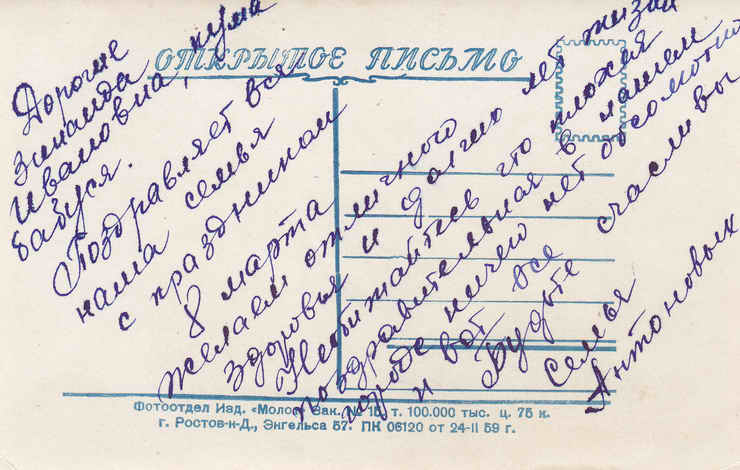 ОТКРЫТОЕ ПИСЬМО
Дорогие
Зинаида
Ивановна, кума
бабуся.
Поздравляет вся
наша семья
с праздником
8 марта
желаем отличного
здоровья и долгих лет жизни
Необижайтесь что плохая
поздравительная в нашем
городе ничего нет
вот все
и Будьте счасливы
семья
Антоновых
Фотоотдел Изд. «Молот» Зак. № 15, т. 100.000 тыс. ц. 75 к.
г. Ростов-н-Д., Энгельса 57. ПК 06120 от 24-II 59 г.